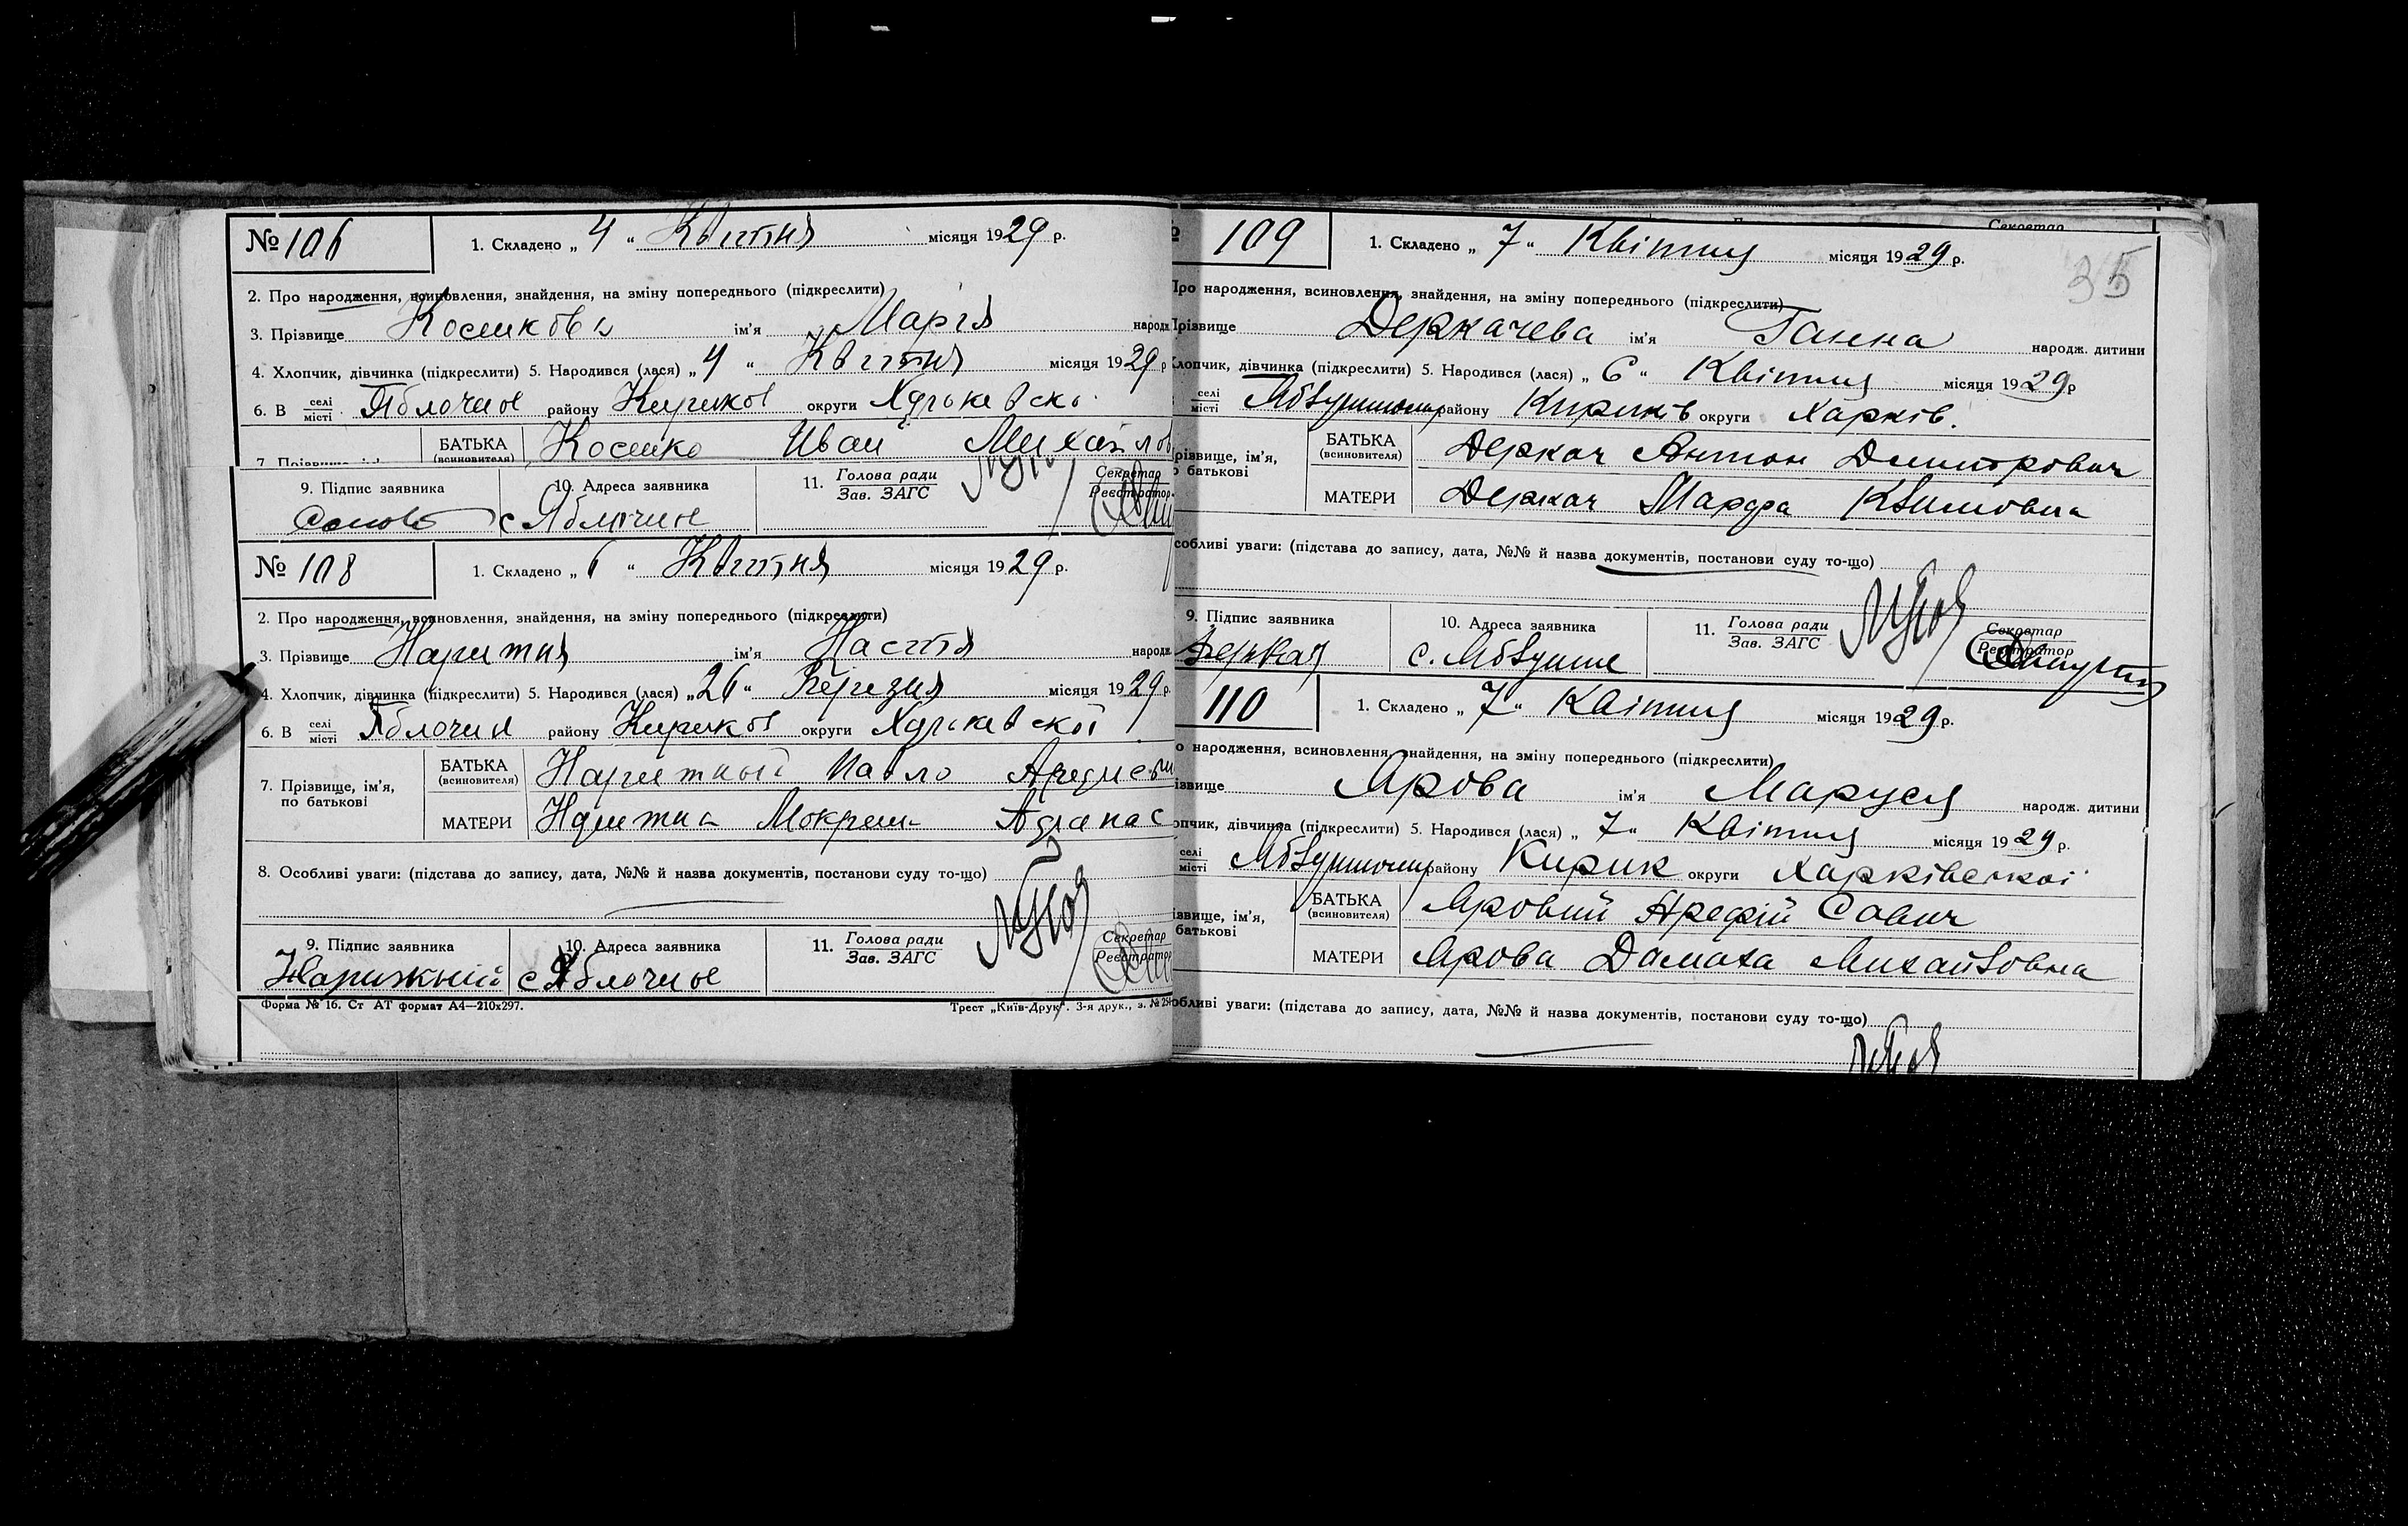 № 106
1. Складено „ 4 “ Квітня місяця 1929 р.
2. Про народження, всиновлення, знайдення, на зміну попереднього (підкреслити)
3. Прізвище ім'я Марія народж
4. Хлопчик, дівчинка (підкреслити) 5. Народився (лася) „ 4 “ Квітня місяця 1929 р
6. В селі місті Яблочне району округи
БАТЬКА (всиновителя) Иван Михайлов
9. Підпис заявника 10. Адреса заявника 11. Голова ради Зав. ЗАГС Секретар Реєстратор
с Яблочне
№ 108
1. Складено „ 6 “ Квітня місяця 1929 р.
2. Про народження, всиновлення, знайдення, на зміну попереднього (підкреслити)
3. Прізвище ім'я Настя народж
4. Хлопчик, дівчинка (підкреслити) 5. Народився (лася) „ 26 “ Березня місяця 1929 р.
6. В селі місті Яблочня району округи Харьківської
7. Прізвище, ім'я, по батькові
БАТЬКА (всиновителя) Павло
МАТЕРИ
8. Особливі уваги: (підстава до запису, дата, №№ й назва документів, постанови суду то-що)
9. Підпис заявника 10. Адреса заявника 11. Голова ради Зав. ЗАГС Секретар Реєстратор
Нарижний с Яблочне
Форма № 16. Ст АТ формат А4—210х297. Трест „Київ-Друк“. 3-я друк., з. №
109
1. Складено „ 7 “ Квітня місяця 1929 р.
35
Про народження, всиновлення, знайдення, на зміну попереднього (підкреслити)
Прізвище Деркачева ім'я Ганна народж. дитини
Хлопчик, дівчинка (підкреслити) 5. Народився (лася) „ 6 “ Квітня місяця 1929 р
селі місті району Кириків округи Харків.
різвище, ім'я, о батькові
БАТЬКА (всиновителя) Деркач Антон Дмитрович
МАТЕРИ Деркач Марфа
собливі уваги: (підстава до запису, дата, №№ й назва документів, постанови суду то-що)
9. Підпис заявника 10. Адреса заявника 11. Голова ради Зав. ЗАГС Секретар Реєстратор
Деркач
110
1. Складено „ 7 “ Квітня місяця 1929 р.
о народження, всиновлення, знайдення, на зміну попереднього (підкреслити)
ізвище Ярова ім'я Маруся народж. дитини
опчик, дівчинка (підкреслити) 5. Народився (лася) „ 7 “ Квітня місяця 1929 р.
селі місті району Кирик округи Харківської
ізвище, ім'я, батькові
БАТЬКА (всиновителя) Яровий Арефій Савич
МАТЕРИ Ярова Домаха
обливі уваги: (підстава до запису, дата, №№ й назва документів, постанови суду то-що)